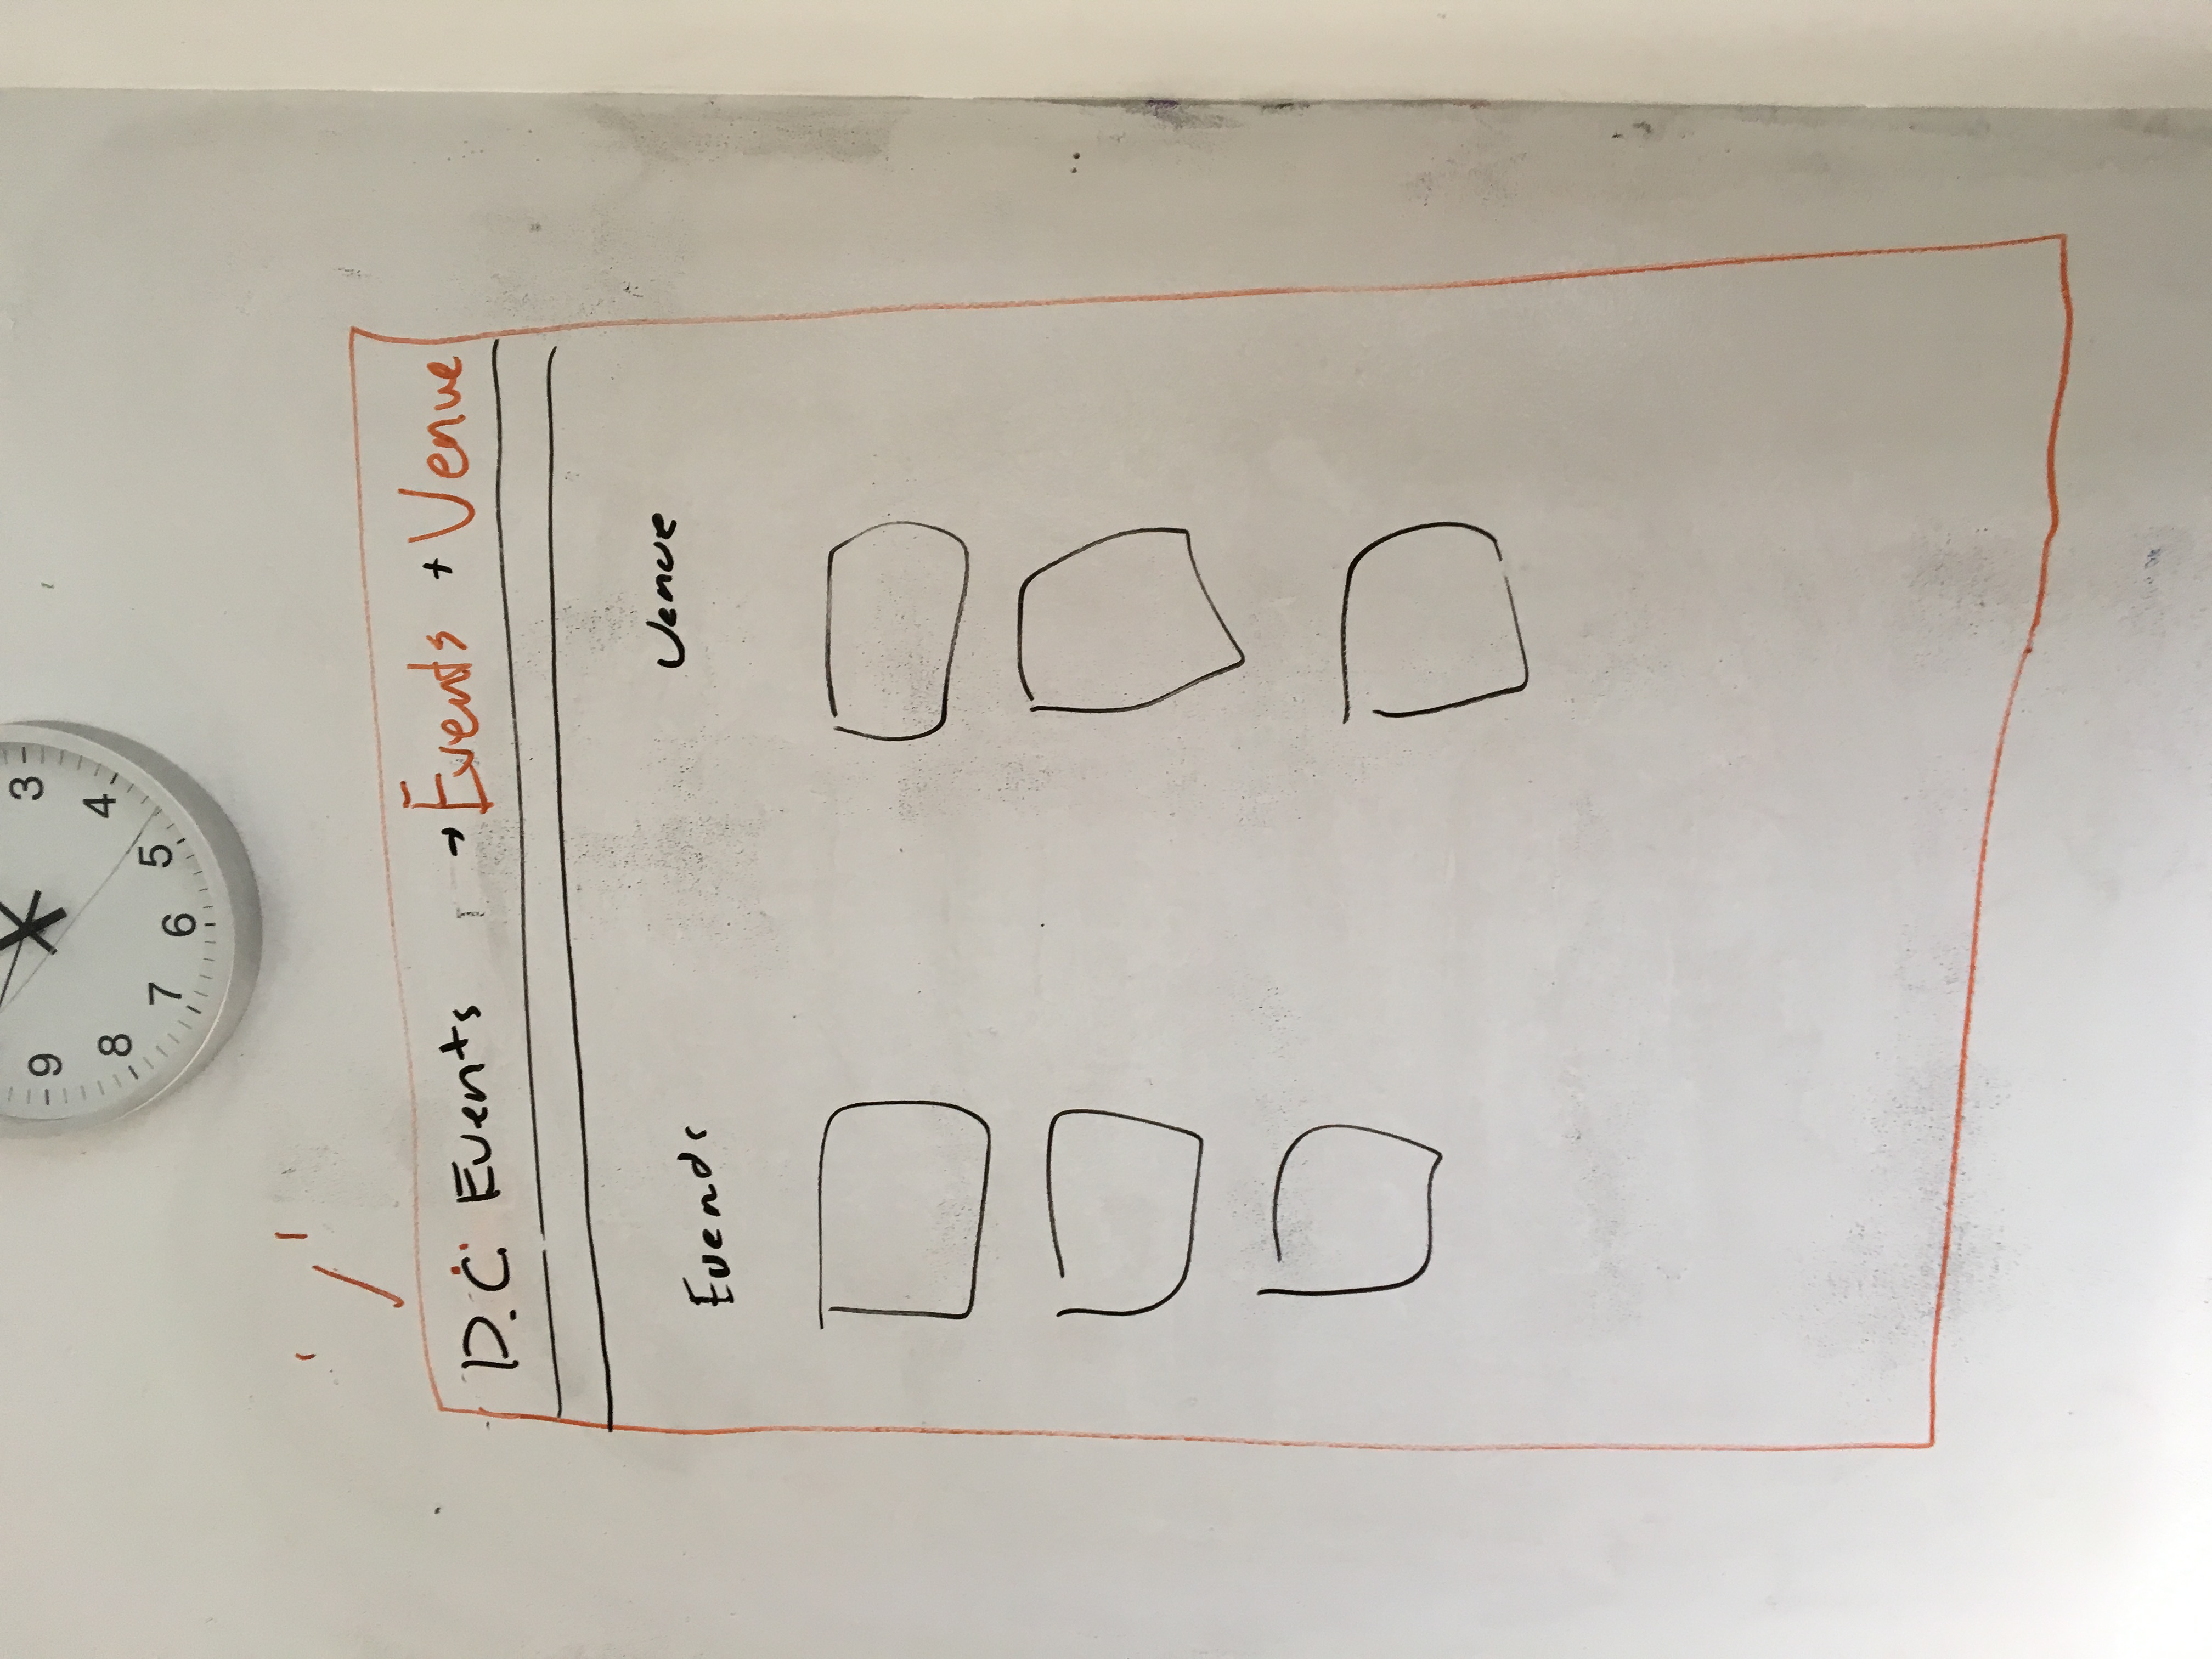 9 3
8 4
7 6 5
'/'
D.C. Events → Events + Venue
Events Venue